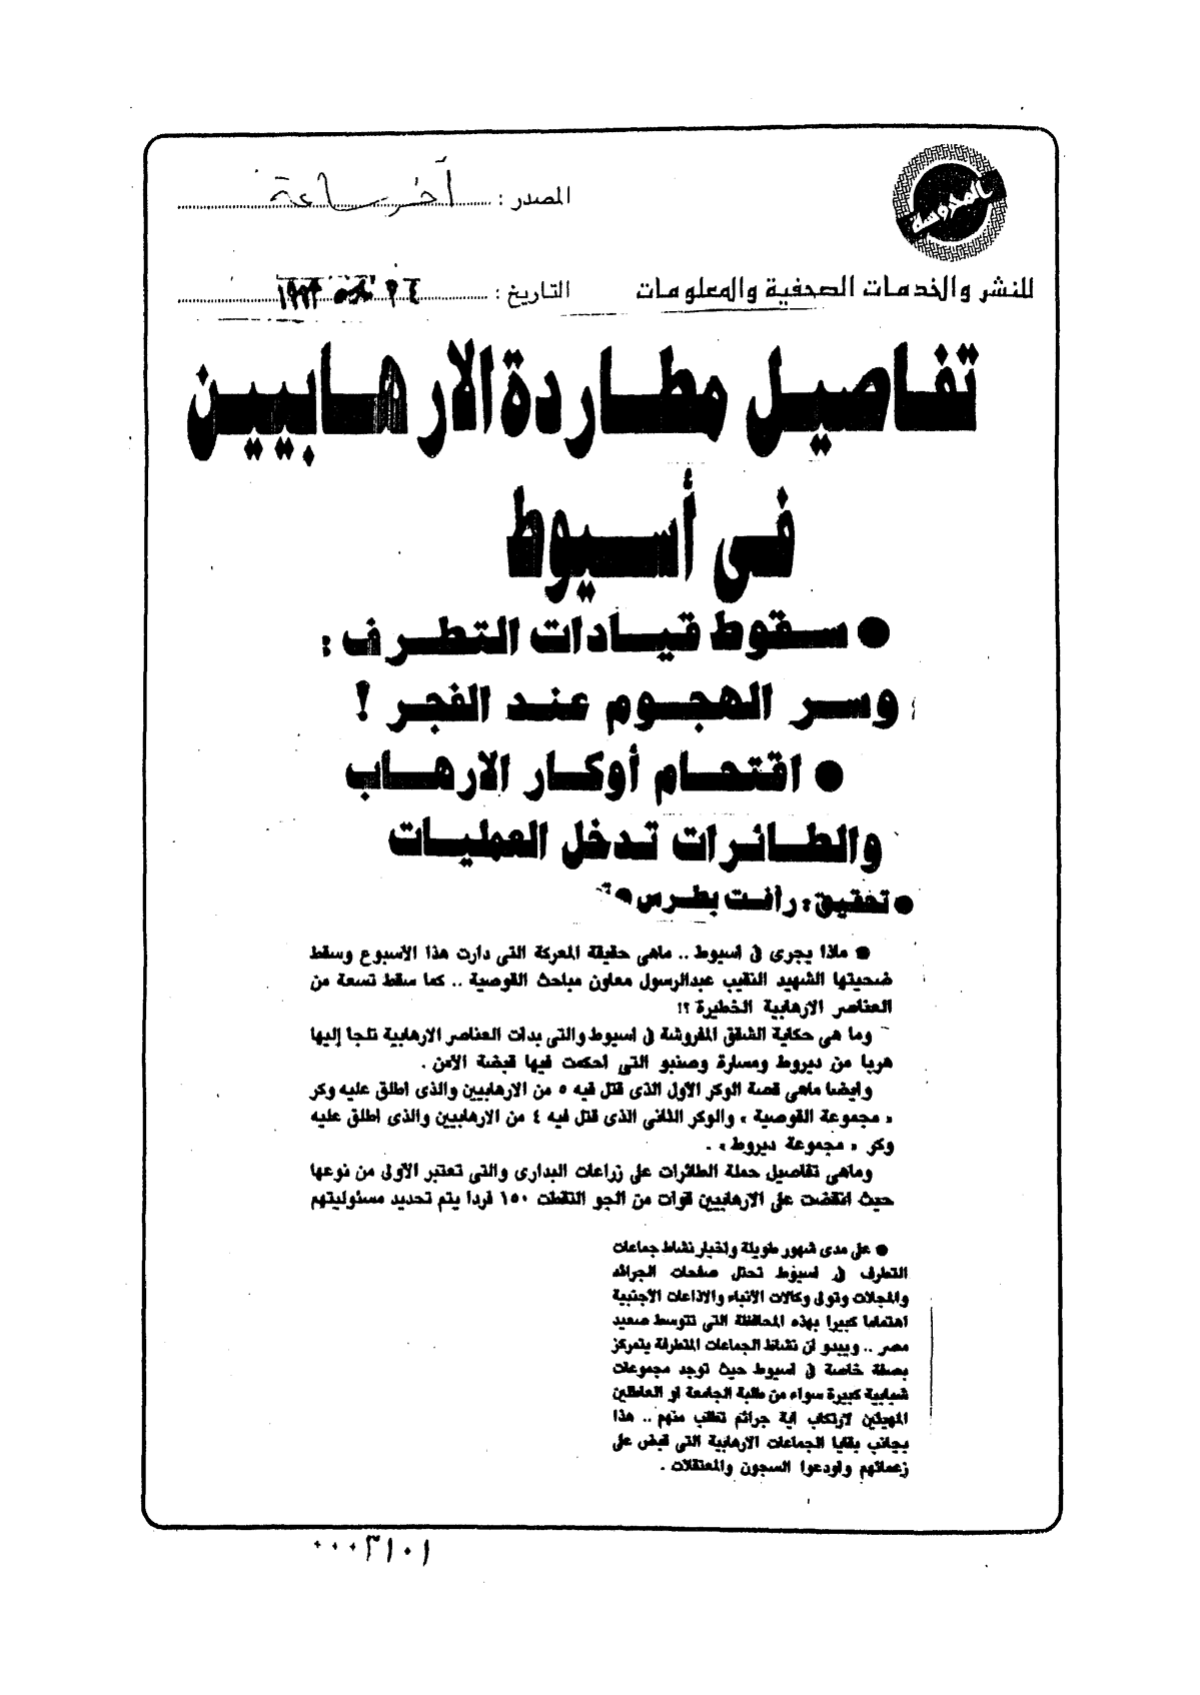 المحروسة
المصدر : آخر ساعة
للنشر والخدمات الصحفية والمعلومات
التاريخ : ٢٤ مارس ١٩٩٣
تفاصيل مطاردة الارهابيين
فى أسيوط
● سقوط قيادات التطرف :
وسر الهجوم عند الفجر !
● اقتحام أوكار الارهاب
والطائرات تدخل العمليات
● تحقيق : رأفت بطرس ●
● ماذا يجرى فى أسيوط .. ماهى حقيقة المعركة التى دارت هذا الأسبوع وسقط
ضحيتها الشهيد النقيب عبدالرسول معاون مباحث القوصية .. كما سقط تسعة من
العناصر الارهابية الخطيرة ؟!
وما هى حكاية الشقق المفروشة فى أسيوط والتى بدأت العناصر الارهابية تلجأ إليها
هربا من ديروط ومسارة وصنبو التى أحكمت فيها قبضة الأمن .
وأيضا ماهى قصة الوكر الأول الذى قتل فيه ٥ من الارهابيين والذى اطلق عليه وكر
« مجموعة القوصية » والوكر الثانى الذى قتل فيه ٤ من الارهابيين والذى اطلق عليه
وكر « مجموعة ديروط » .
وماهى تفاصيل حملة الطائرات على زراعات البدارى والتى تعتبر الأولى من نوعها
حيث انقضت على الارهابيين قوات من الجو التقطت ١٥٠ فردا يتم تحديد مسئوليتهم
● على مدى شهور طويلة وأخبار نشاط جماعات
التطرف فى أسيوط تحتل صفحات الجرائد
والمجلات وتولى وكالات الأنباء والاذاعات الأجنبية
اهتماما كبيرا بهذه المحافظة التى تتوسط صعيد
مصر .. ويبدو أن نشاط الجماعات المتطرفة يتمركز
بصفة خاصة فى أسيوط حيث توجد مجموعات
شبابية كبيرة سواء من طلبة الجامعة او العاطلين
المهيئين لارتكاب اية جرائم تطلب منهم .. هذا
بجانب بقايا الجماعات الارهابية التى قبض على
زعمائهم وأودعوا السجون والمعتقلات .
٠٠٠٣١٠١